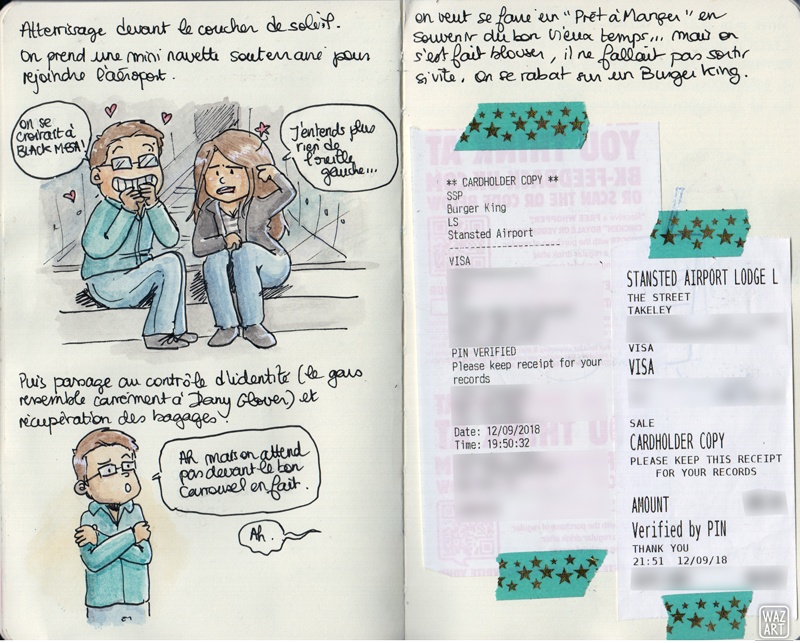 Atterrissage devant le coucher de soleil.
On prend une mini navette souterraine pour
rejoindre l'aéroport.
on se
croirait à
BLACK MESA!
J'entends plus
rien de
l'oreille
gauche...
Puis passage au contrôle d'identité (le gars
ressemble carrément à Dany Glover) et
récupération des bagages.
Ah mais on attend
pas devant le bon
carrousel en fait.
Ah.
on veut se faire un "Prêt à Manger" en
souvenir du bon vieux temps... mais on
s'est fait blouser, il ne fallait pas sortir
si vite. On se rabat sur un Burger King.
YOU THINK AT
BK-FEED
OR SCAN THE QR CO
** CARDHOLDER COPY **
SSP
Burger King
LS
Stansted Airport
VISA
PIN VERIFIED
Please keep receipt for your
records
Date: 12/09/2018
Time: 19:50:32
STANSTED AIRPORT LODGE L
THE STREET
TAKELEY
VISA
VISA
SALE
CARDHOLDER COPY
PLEASE KEEP THIS RECEIPT
FOR YOUR RECORDS
AMOUNT
Verified by PIN
THANK YOU
21:51 12/09/18
WAZ
ART